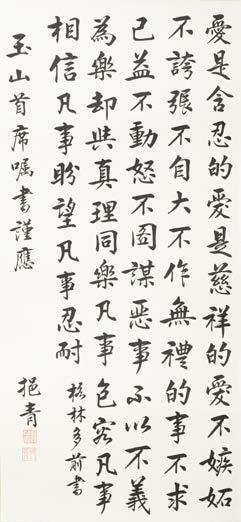 愛是含忍的愛是慈祥的愛不嫉妬
不誇張不自大不作無禮的事不求
己益不動怒不圖謀惡事不以不義
為樂却與真理同樂凡事包容凡事
相信凡事盼望凡事忍耐
格林多前書
玉山首席囑書謹應
挹青